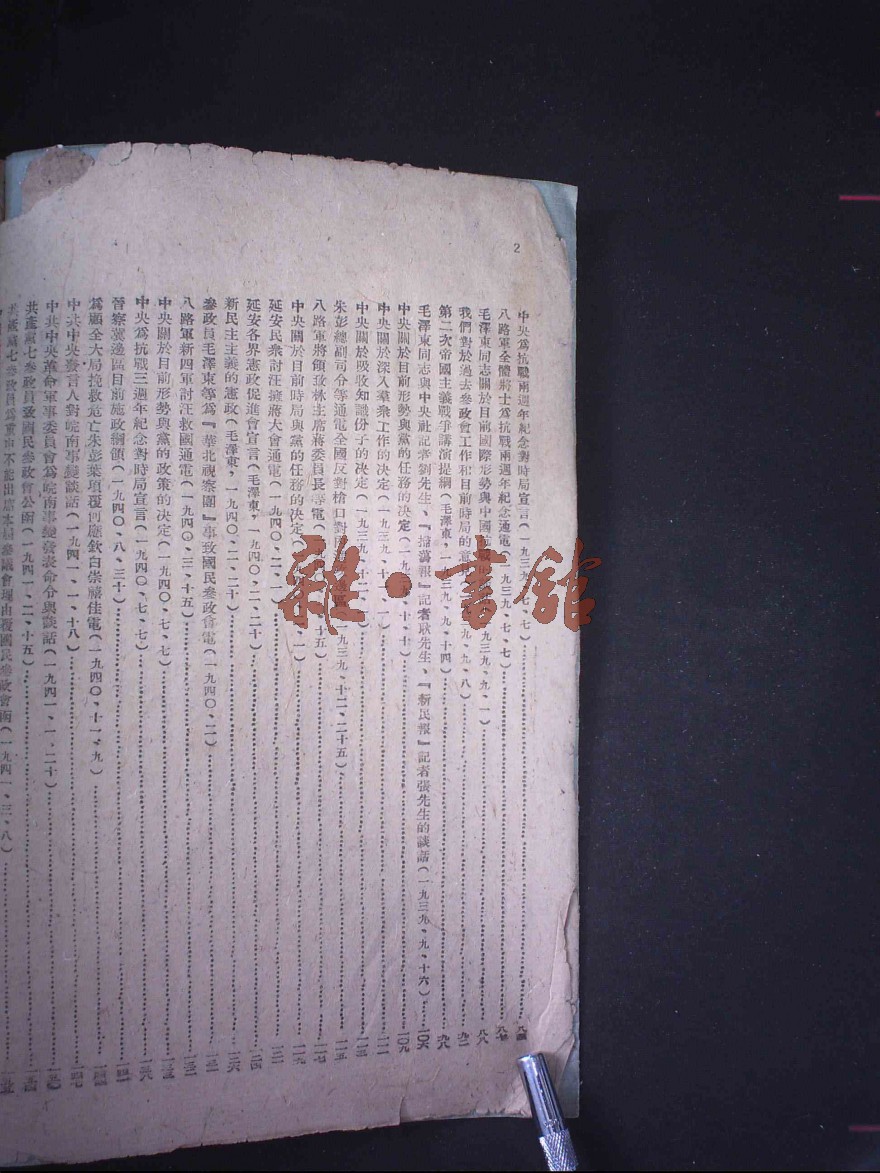 2
中央爲抗戰兩週年紀念對時局宣言(一九三九、七、七)
八路軍全體將士爲抗戰兩週年紀念通電(一九三九、七、七)
毛澤東同志關於目前國際形勢與中國抗戰的 九三九、九、一) 八八
我們對於過去參政會工作和目前時局的意 九三九、九、八) 九二
第二次帝國主義戰爭講演提綱(毛澤東,一九三九、九、十四) 九八
毛澤東同志與中央社記者劉先生、『掃蕩報』記者耿先生、『新民報』記者張先生的談話(一九三九、九、十六) 一〇六
中央關於目前形勢與黨的任務的決定(一九三九、十、十) 一〇九
中央關於深入羣衆工作的決定(一九三九、十一、一)
中央關於吸收知識份子的決定(一九三九、十二、一)
朱彭總副司令等通電全國反對槍口對 一九三九、十二、二十五) 一一五
八路軍將領致林主席蔣委員長等電( 十五) 一一七
中央關於目前時局與黨的任務的決定(
延安民衆討汪擁蔣大會通電(一九四〇、二、一)
延安各界憲政促進會宣言(毛澤東,一九四〇、二、二十) 一二四
新民主主義的憲政(毛澤東,一九四〇、二、二十) 一二六
參政員毛澤東等爲『華北視察團』事致國民參政會電(一九四〇、二)
八路軍新四軍討汪救國通電(一九四〇、三、十五)
中央關於目前形勢與黨的政策的決定(一九四〇、七、七)
中央爲抗戰三週年紀念對時局宣言(一九四〇、七、七)
晉察冀邊區目前施政綱領(一九四〇、八、三十)
爲顧全大局挽救危亡朱彭葉項覆何應欽白崇禧佳電(一九四〇、十一、九)
中共中央發言人對皖南事變談話(一九四一、一、十八)
中共中央革命軍事委員會爲皖南事變發表命令與談話(一九四一、一、二十)
共產黨七參政員致國民參政會公函(一九四一、二、十五)
共產黨七參政員爲 不能出席本屆參議會理由覆國民參政會函(一九四一、三、八)
雜·書館